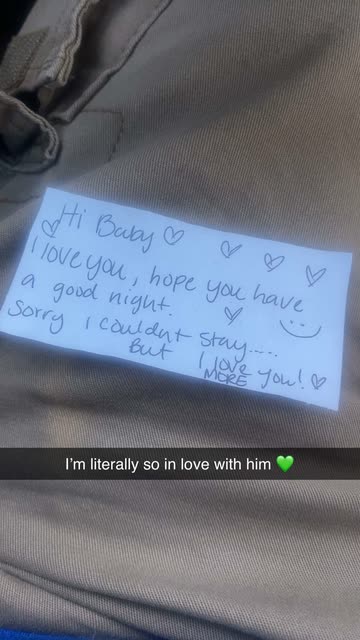 Hi Baby ♡ ♡ ♡ ♡
♡ I love you, hope you have
a good night. ♡ :)
Sorry i couldnt stay....
But I love
MORE you! ♡
I'm literally so in love with him 💚